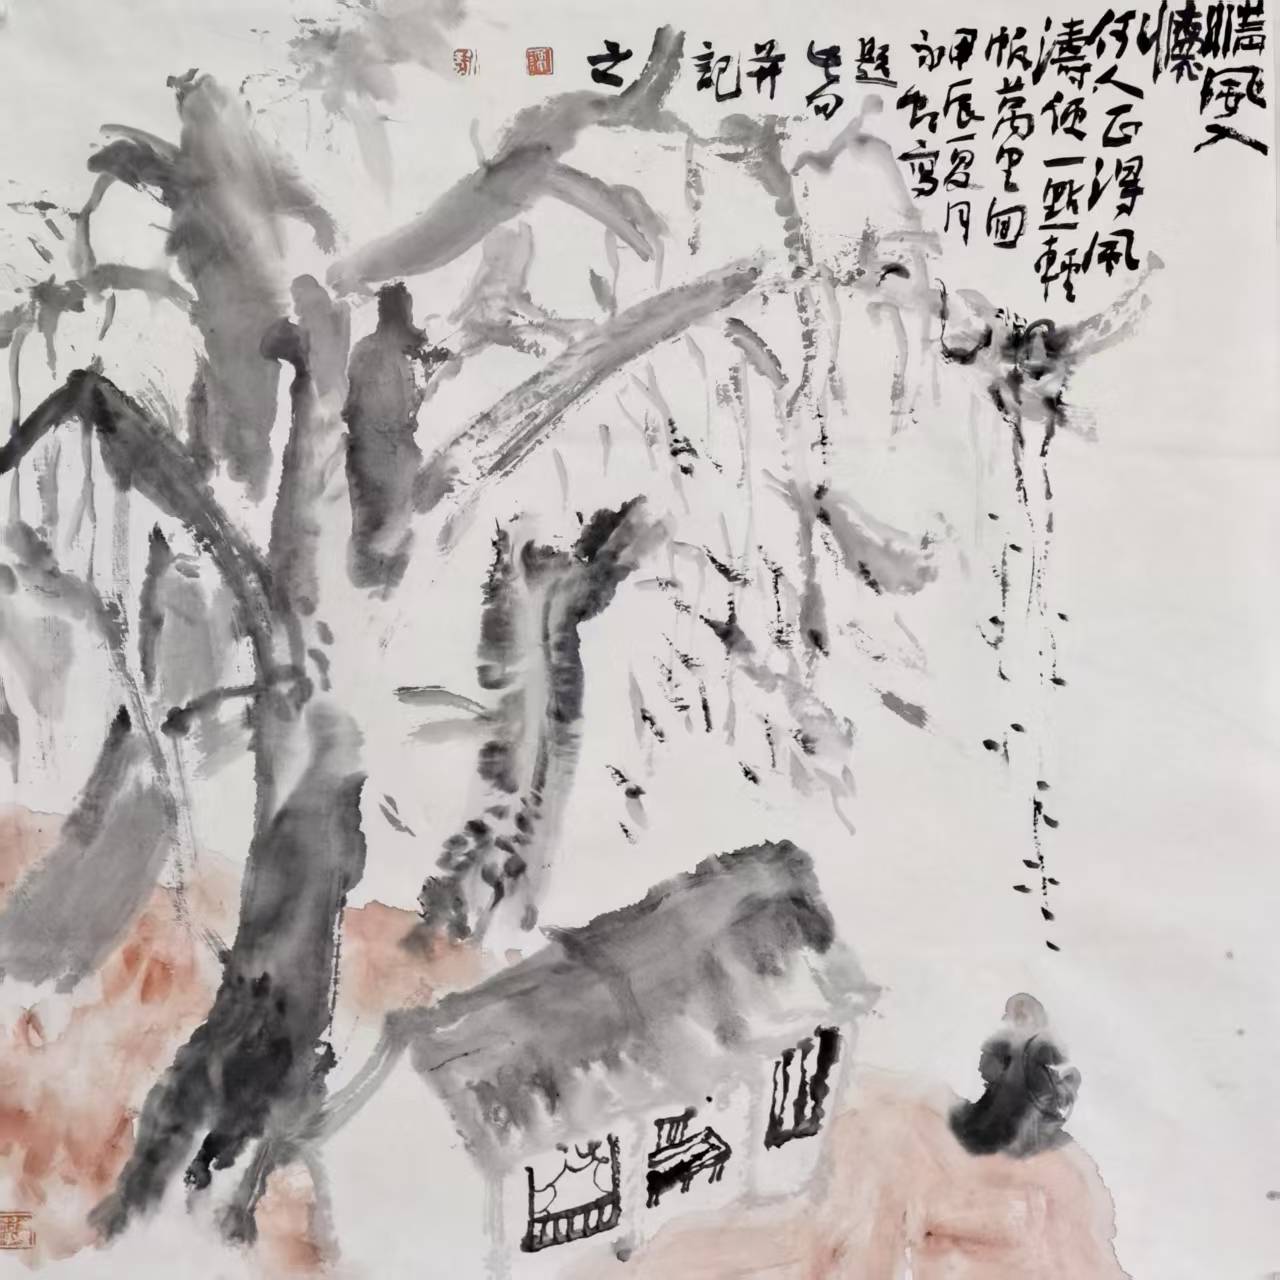 清風入
懷
何人正得風
濤便一點輕
帆萬里回
甲辰夏月
永 寫
題
句
并
記
之